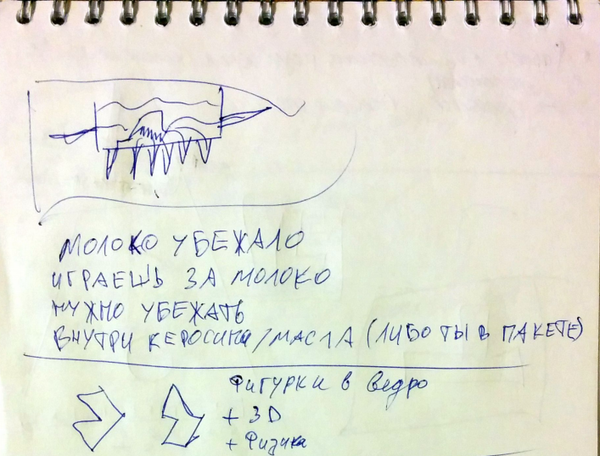 МОЛОКО УБЕЖАЛО
ИГРАЕШЬ ЗА МОЛОКО
НУЖНО УБЕЖАТЬ
ВНУТРИ КЕРОСИНА/МАСЛА (ЛИБО ТЫ В ПАКЕТЕ)
ФИГУРКИ В ВЕДРО
+ 3D
+ Физика